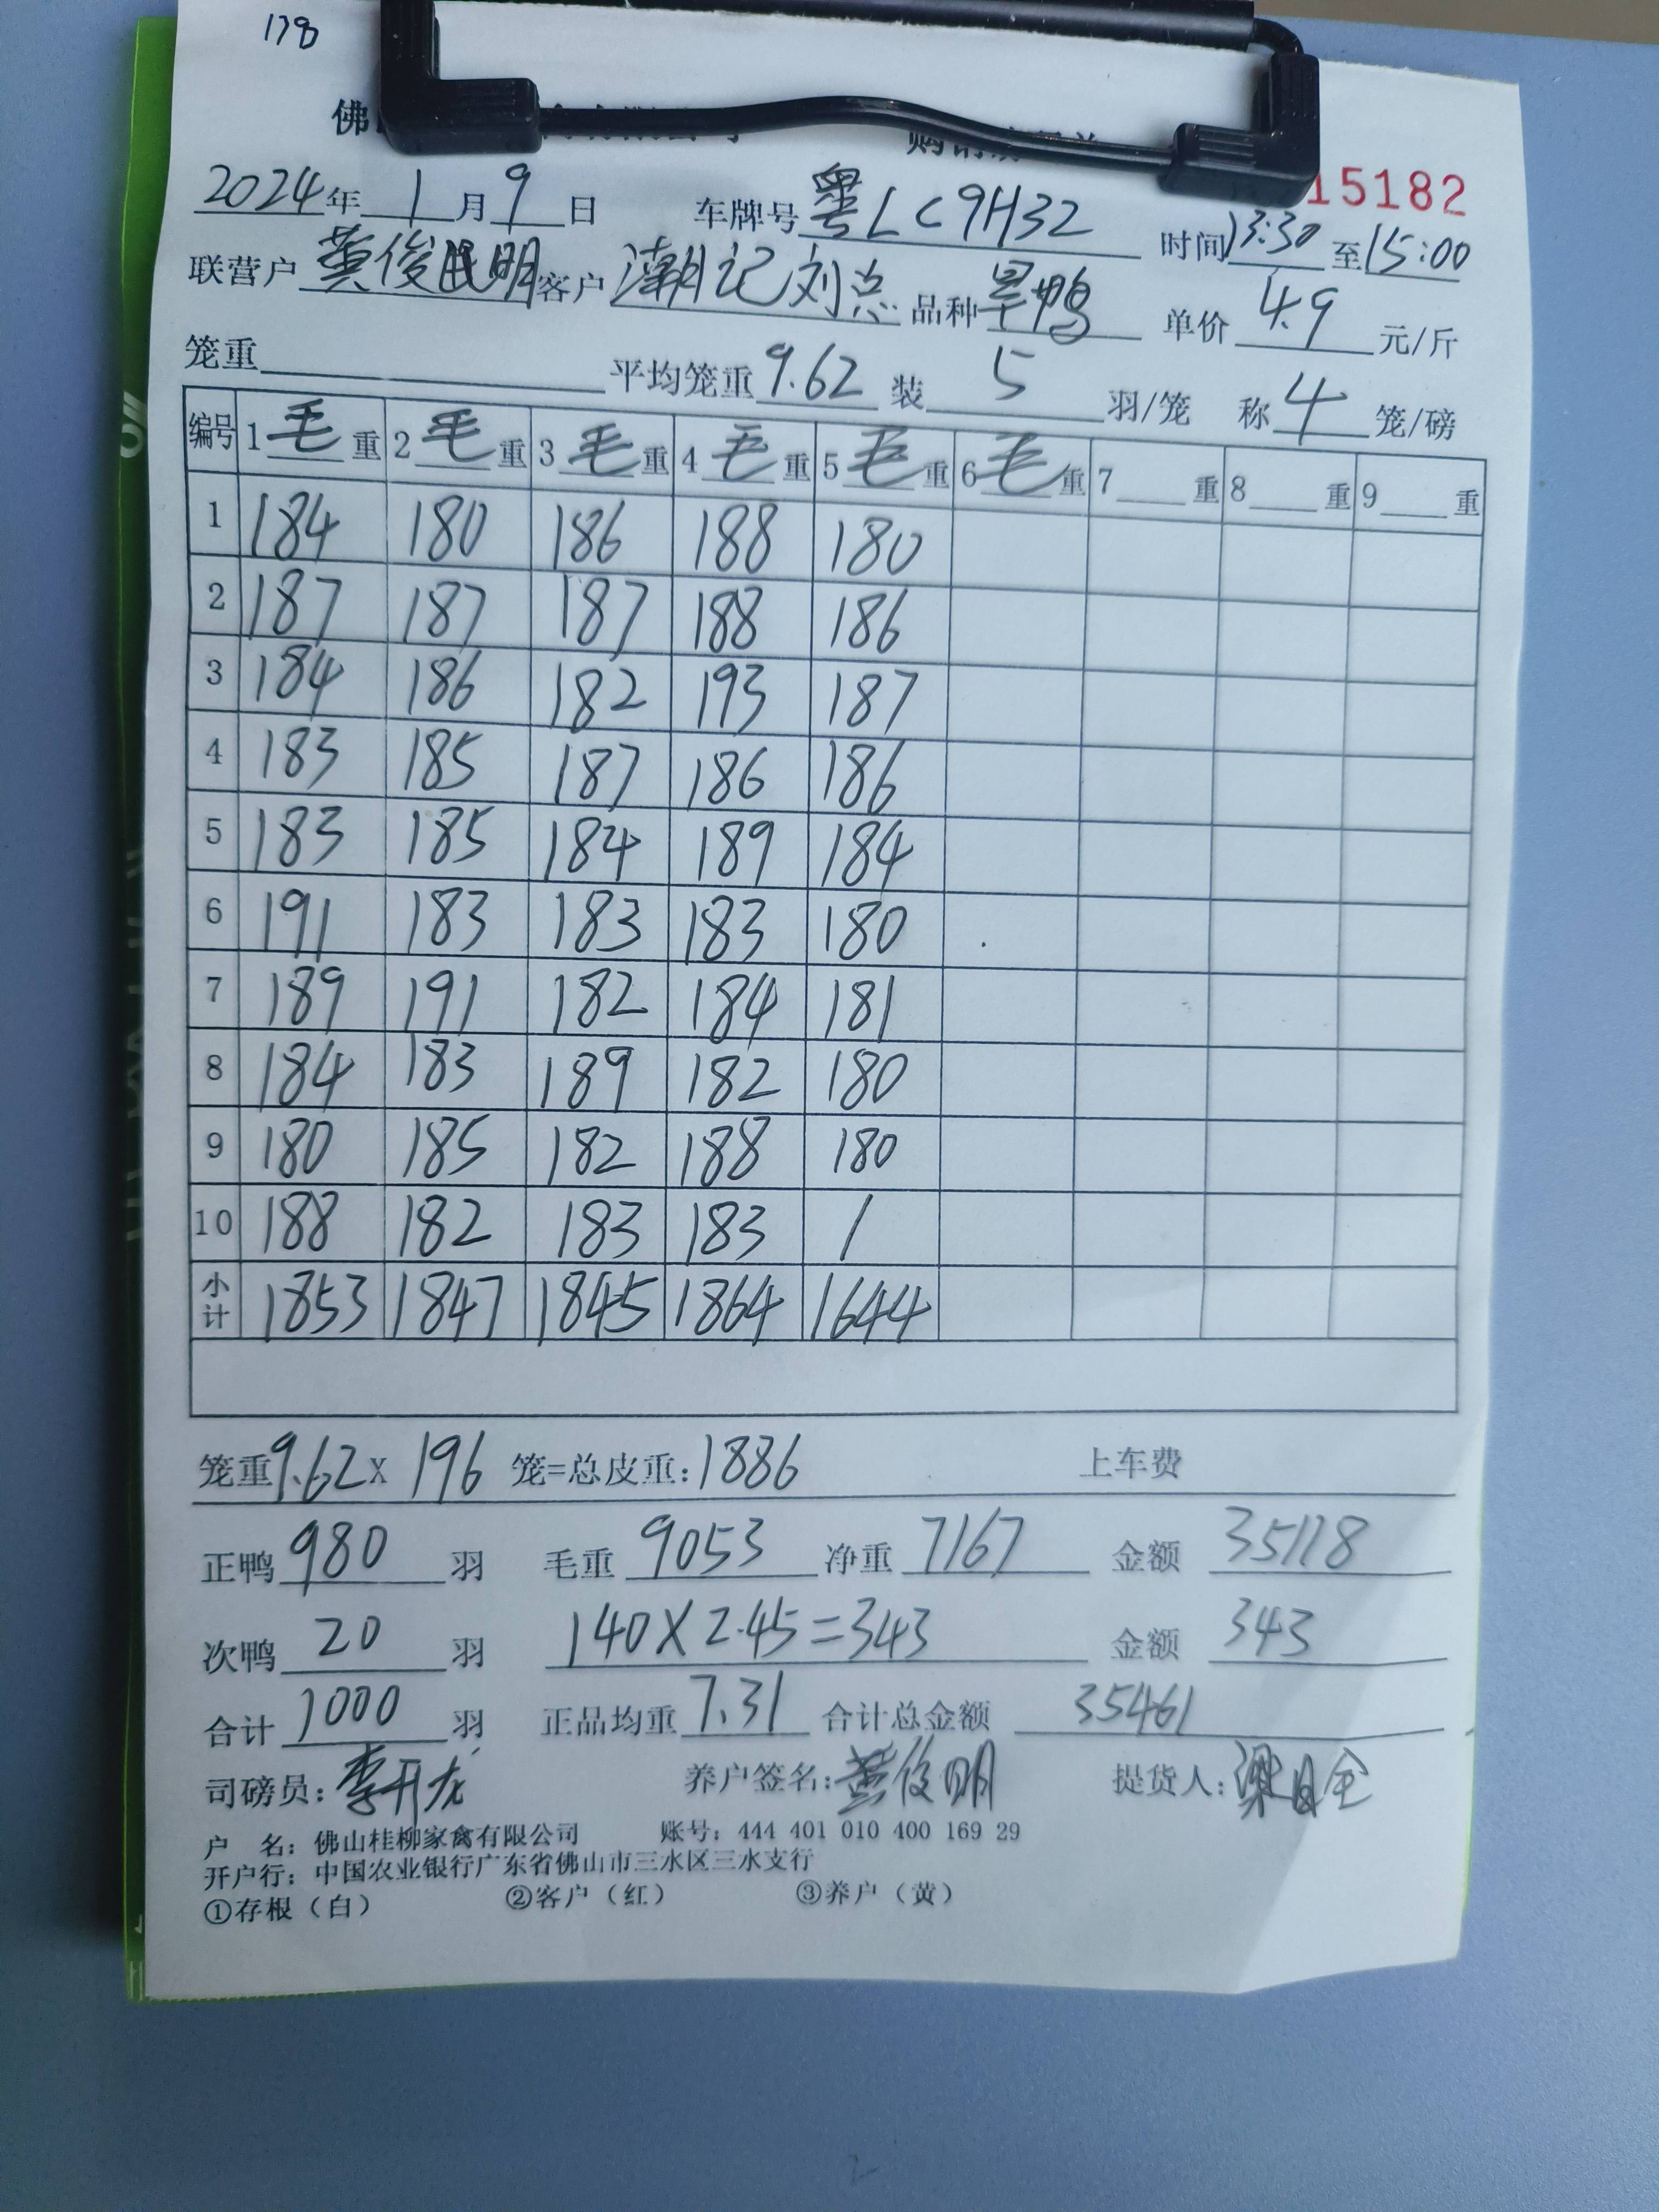 178
佛
15182
2024年1月9日 车牌号 粤LC9H32 时间13:30至15:00
联营户 黄俊明 客户 潮记刘点 品种 旱鸭 单价 4.9 元/斤
笼重 平均笼重 9.62 装 5 羽/笼 称 4 笼/磅
编号 1毛重 2毛重 3毛重 4毛重 5毛重 6毛重 7重 8重 9重
1 184 180 186 188 180
2 187 187 187 188 186
3 184 186 182 193 187
4 183 185 187 186 186
5 183 185 184 189 184
6 191 183 183 183 180
7 189 191 182 184 181
8 184 183 189 182 180
9 180 185 182 188 180
10 188 182 183 183 /
小计 1853 1847 1845 1864 1644
笼重9.62X 196 笼=总皮重:1886 上车费
正鸭 980 羽 毛重 9053 净重 7167 金额 35118
次鸭 20 羽 140X2.45=343 金额 343
合计 1000 羽 正品均重 7.31 合计总金额 35461
司磅员:李开龙 养户签名:黄俊明 提货人:
户 名: 佛山桂柳家禽有限公司 账号: 444 401 010 400 169 29
开户行: 中国农业银行广东省佛山市三水区三水支行
①存根(白) ②客户(红) ③养户(黄)